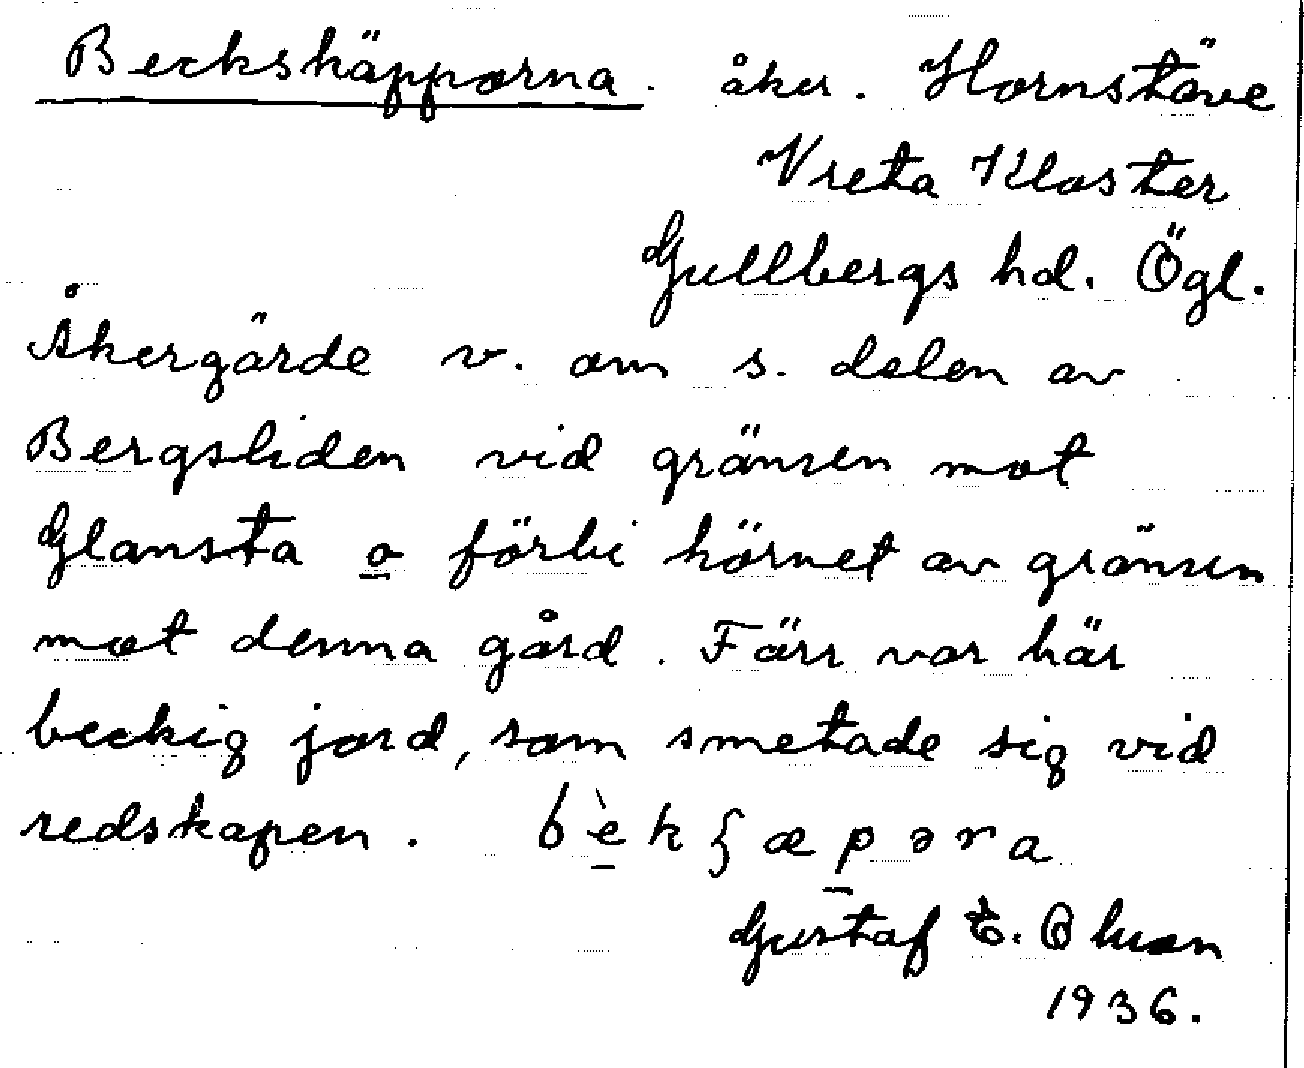 Beckskäpporna. åker. Hornstäve
Vreta Kloster
Gullbergs hd. Ögl.
Åkergärde v. om s. delen av
Bergsliden vid gränsen mot
Glansta o förbi hörnet av gränsen
mot denna gård. Förr var här
beckig jord, som smetade sig vid
redskapen. bèkʃæpəra
Gustaf E. Olsson
1936.